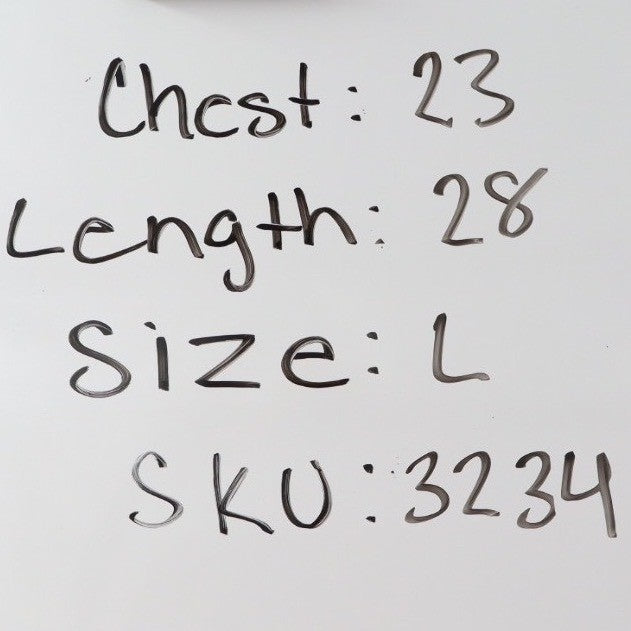 Chest: 23
Length: 28
Size: L
SKU: 3234